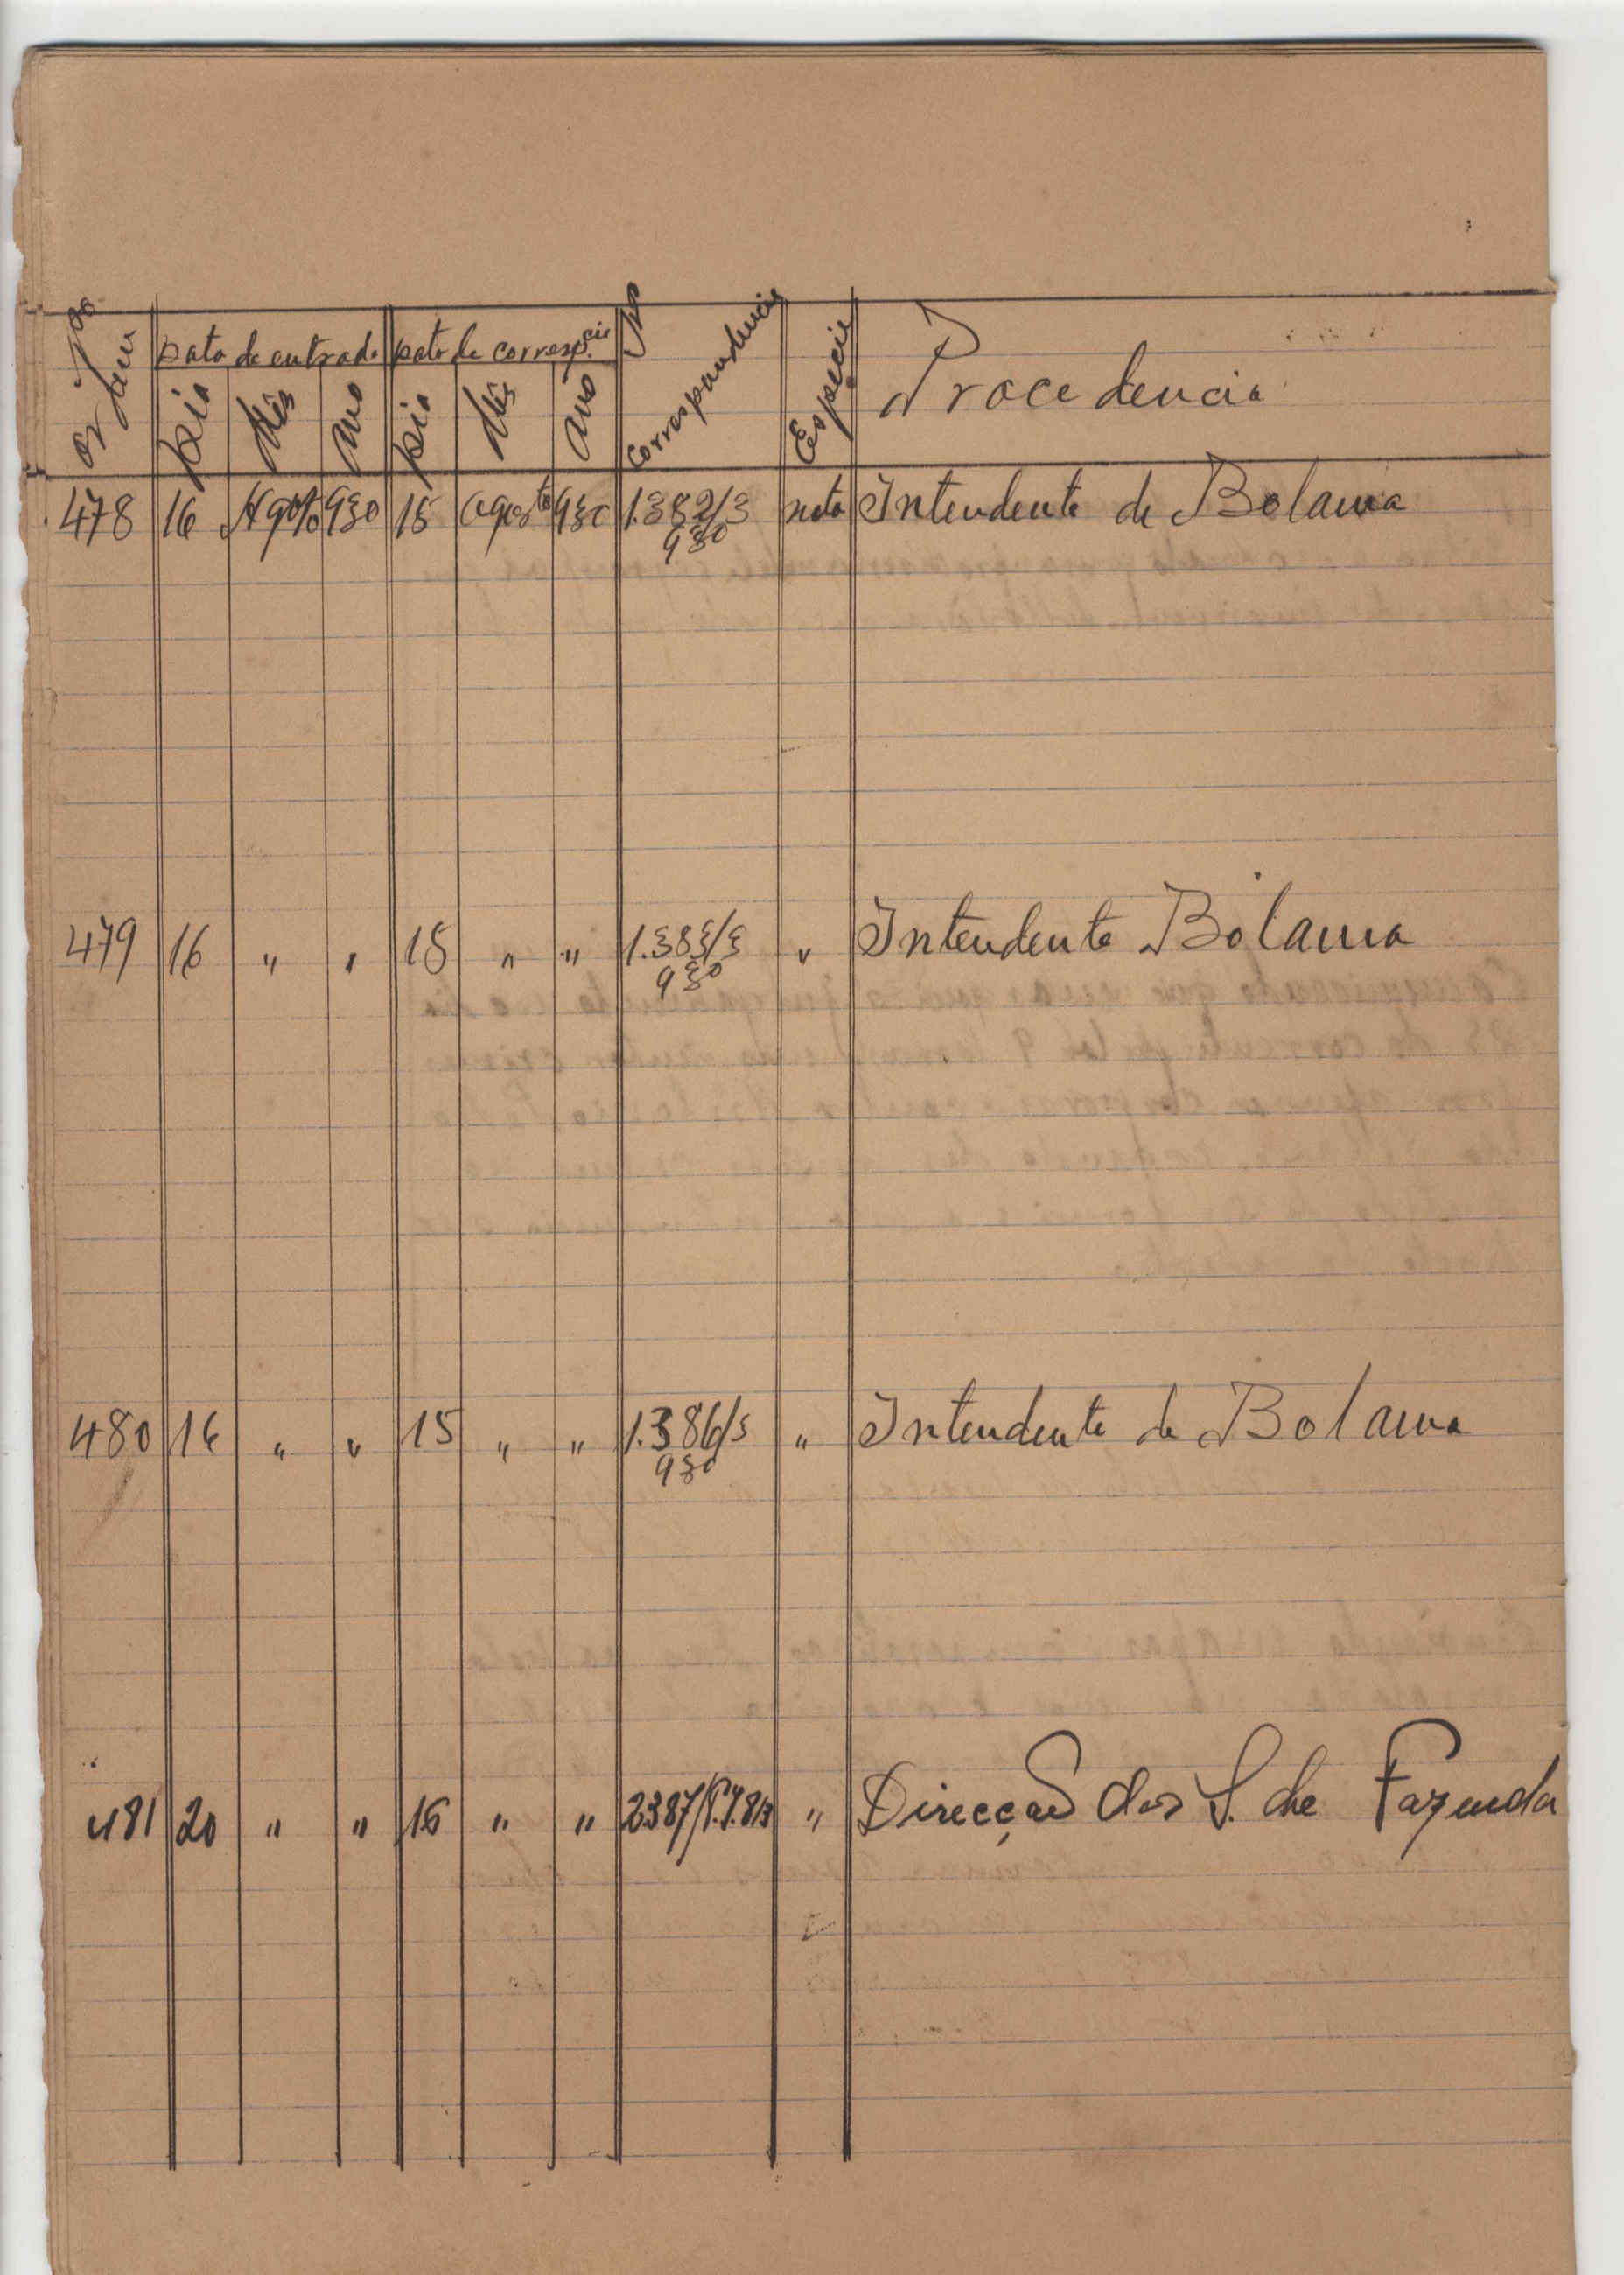 Nº de ordem
Data de entrada
Dia Mês Ano
Data de corresp.cia
Dia Mês Ano
Nº Correspondencia
Especie
Procedencia
478 16 Agosto 930 15 agosto 930 1.382/3 nota Intendente de Bolama
930
479 16 " " 15 " " 1.383/3 " Intendente Bolama
930
480 16 " " 15 " " 1.386/3 " Intendente de Bolama
930
481 20 " " 16 " " 2387 " Direcção dos S. de Fazenda